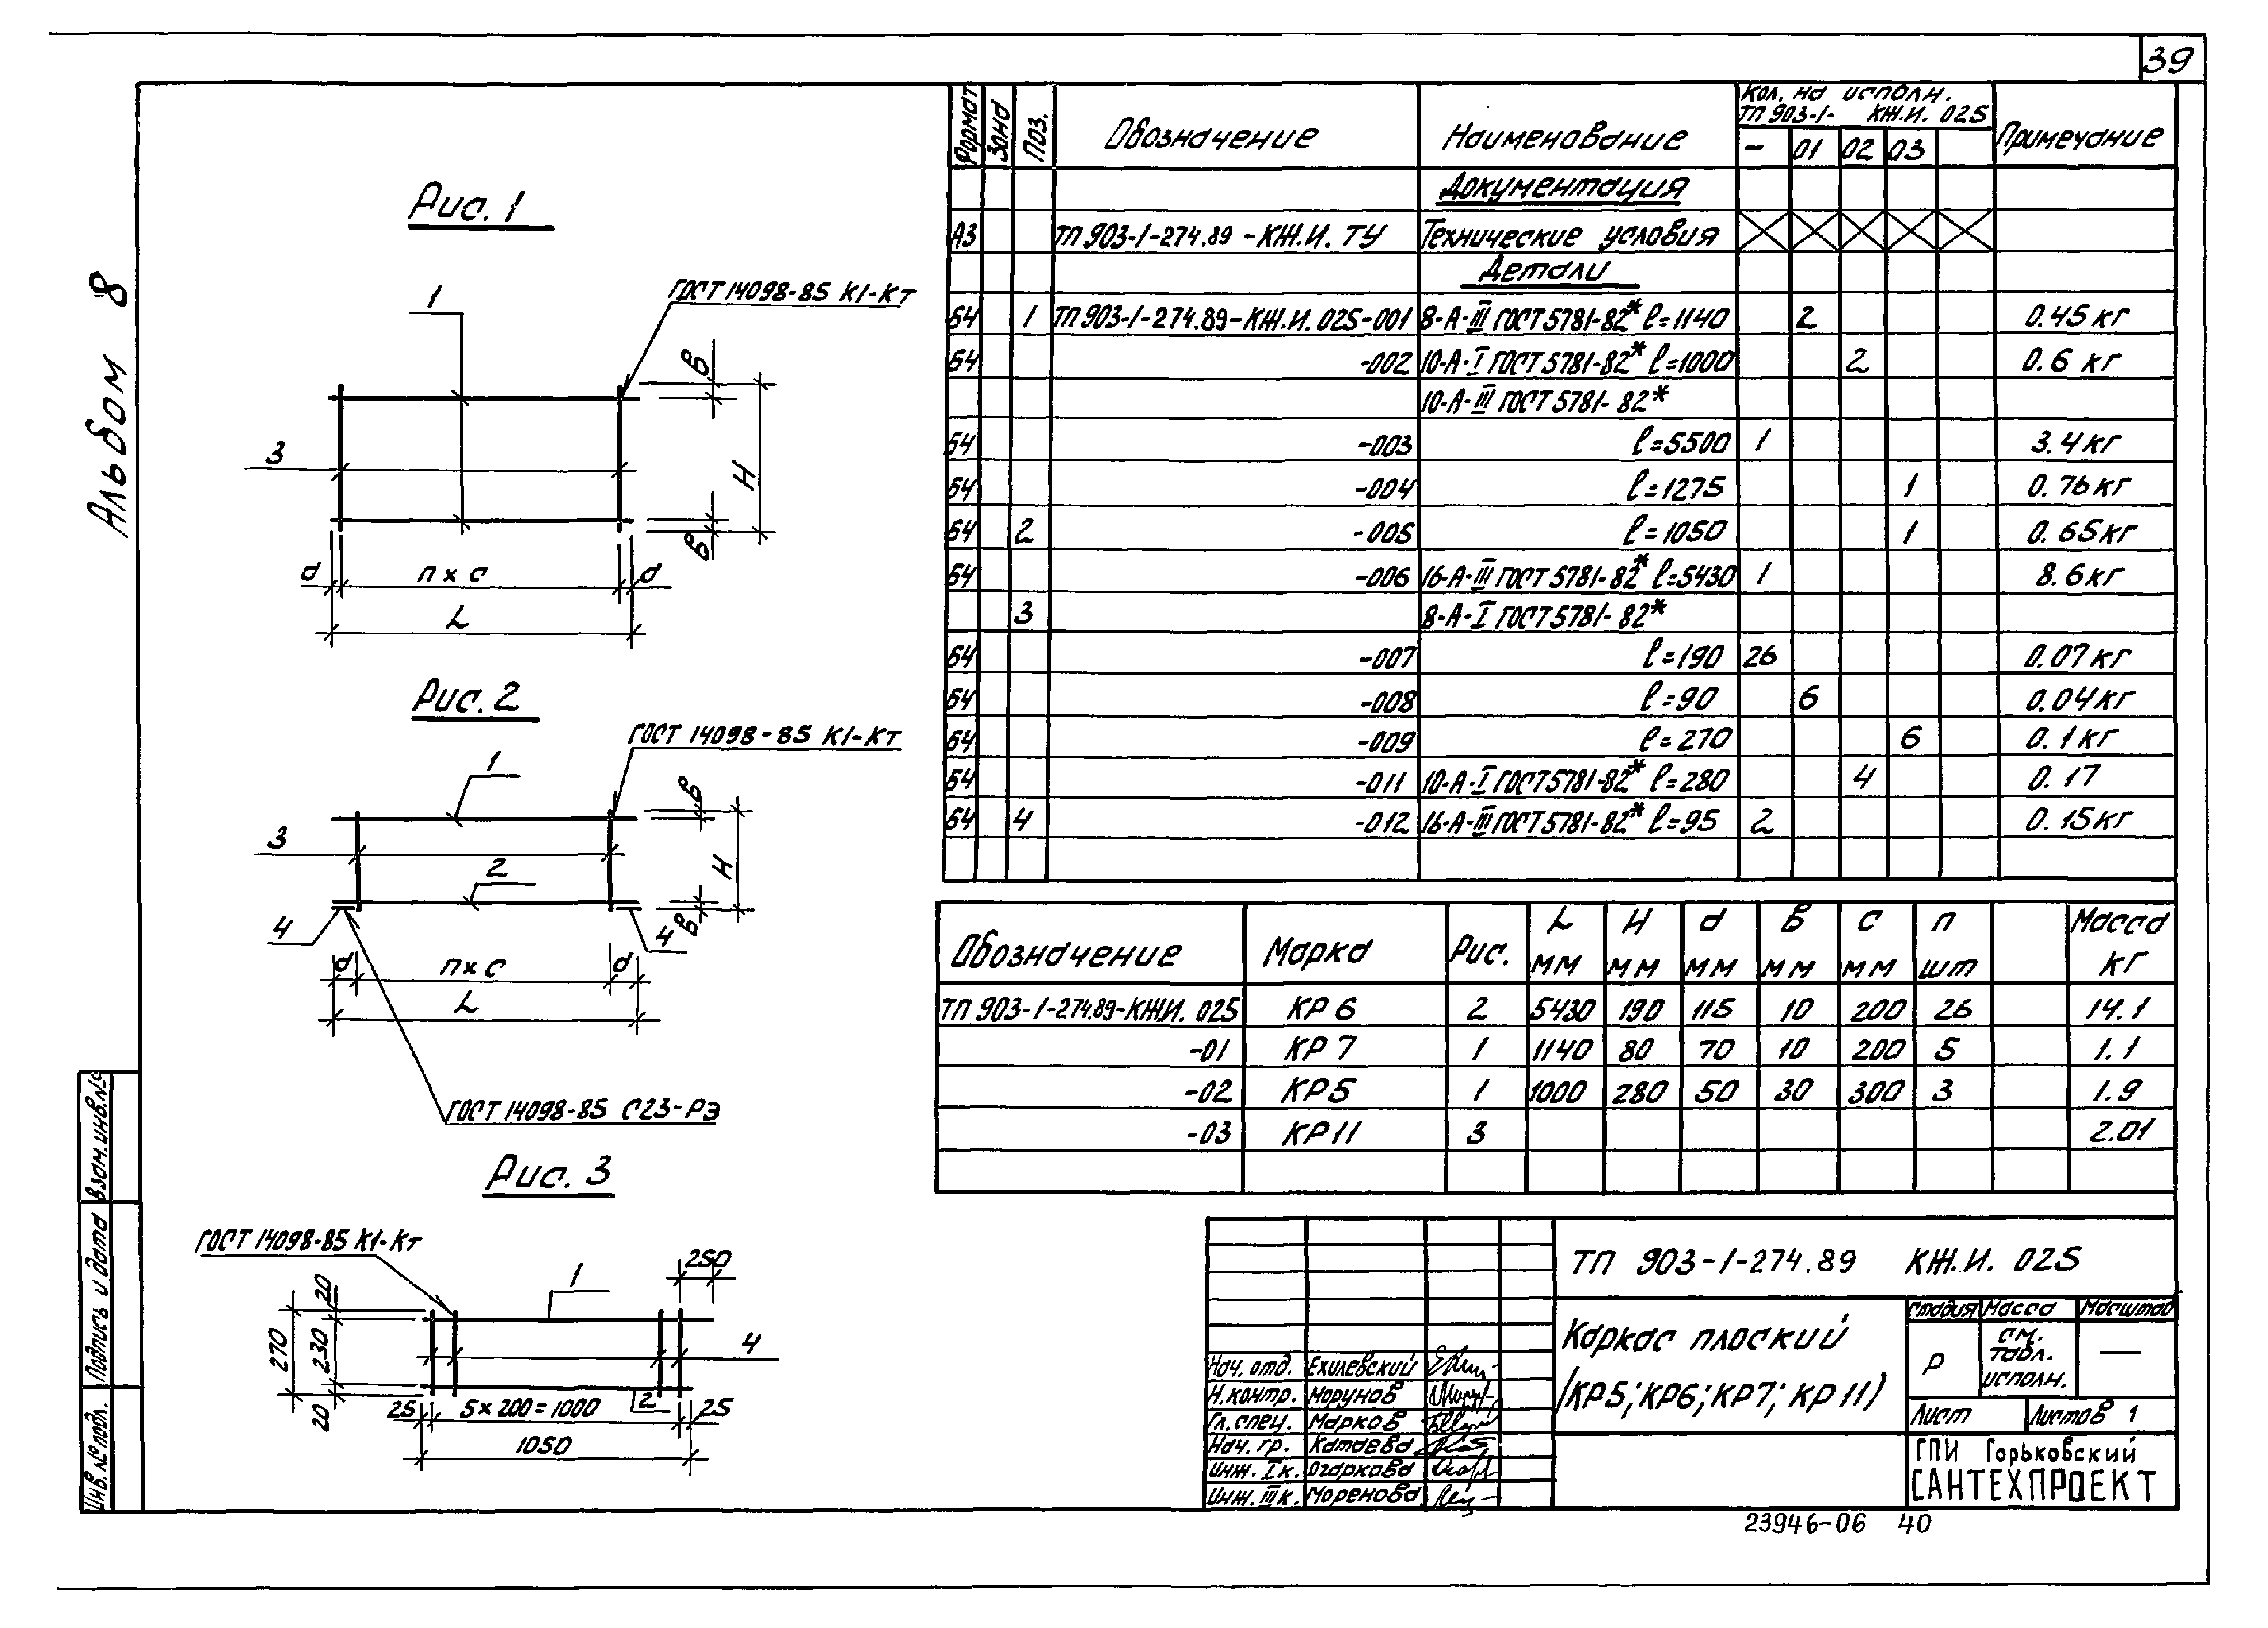 39
Альбом 8
Рис. 1
ГОСТ 14098-85 К1-Кт
1
3
в
Н
в
d
n x c
d
L
Рис. 2
ГОСТ 14098-85 К1-Кт
1
3
2
4
4
в
Н
в
d
n x c
d
L
ГОСТ 14098-85 С23-РЭ
Рис. 3
ГОСТ 14098-85 К1-Кт
250
1
4
2
20
270
230
20
25
5 x 200 = 1000
25
1050
Формат Зона Поз. Обозначение Наименование Кол. на исполн. ТП 903-1- КЖ.И. 025 Примечание
- 01 02 03
Документация
А3 ТП 903-1-274.89 -КЖ.И. ТУ Технические условия
Детали
Б4 1 ТП 903-1-274.89-КЖ.И. 025-001 8-А-III ГОСТ 5781-82* ℓ=1140 2 0.45 кг
Б4 -002 10-А-I ГОСТ 5781-82* ℓ=1000 2 0.6 кг
10-А-III ГОСТ 5781-82*
Б4 -003 ℓ=5500 1 3.4 кг
Б4 -004 ℓ=1275 1 0.76 кг
Б4 2 -005 ℓ=1050 1 0.65 кг
Б4 -006 16-А-III ГОСТ 5781-82* ℓ=5430 1 8.6 кг
3 8-А-I ГОСТ 5781-82*
Б4 -007 ℓ=190 26 0.07 кг
Б4 -008 ℓ=90 6 0.04 кг
Б4 -009 ℓ=270 6 0.1 кг
Б4 -011 10-А-I ГОСТ 5781-82* ℓ=280 4 0.17
Б4 4 -012 16-А-III ГОСТ 5781-82* ℓ=95 2 0.15 кг
Обозначение Марка Рис. L мм Н мм d мм в мм с мм п шт Масса кг
ТП 903-1-274.89-КЖИ. 025 КР 6 2 5430 190 115 10 200 26 14.1
-01 КР 7 1 1140 80 70 10 200 5 1.1
-02 КР5 1 1000 280 50 30 300 3 1.9
-03 КР 11 3 2.01
ТП 903-1-274.89 КЖ.И. 025
Каркас плоский
(КР5; КР6; КР7; КР 11)
Стадия Масса Масштаб
Р см. табл. исполн. —
Лист Листов 1
ГПИ Горьковский
САНТЕХПРОЕКТ
Нач. отд. Ехилевский
Н. контр. Морунов
Гл. спец. Марков
Нач. гр. Катаева
Инж. I к. Огаркова
Инж. III к. Моренова
Взам. инв. №
Подпись и дата
Инв. № подл.
23946-06 40